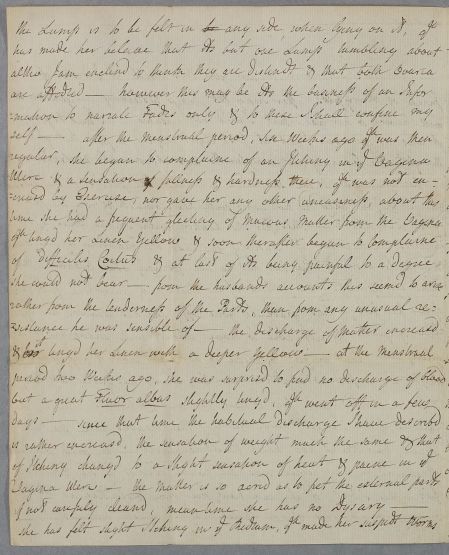 the Lump is to be felt in any side when lying on it, qch
has made her beleive that its but one Lump tumbling about
altho I am enclind to think they are distinct & that both Ovaria
are affected — however this may be its the business of an Infor
mation to narrate Facts only & to these I shall confine my
self — after the menstrual period, six Weeks ago qch was then
regular, she began to complaine of an Itching in ye Vagina
Uteri & a sensation of fullness & hardness there, qch was not en-
creasd by Exercise, nor gave her any other uneasiness, about this
time she had a frequent gleeting of Mucous Matter from the Vagina
qch tingd her Linen Yellow & soon therafter began to complaine
of Difficilis Coitus & at last of its being painful to a degree
She could not bear — from the husbands accounts this seemd to arise
rather from the tenderness of the Parts, than from any unusual re-
sistance he was sensible of — the discharge of Matter increasd
& tingd her Linen with a deeper Yellow — at the menstrual
period two Weeks ago, she was surprisd to find no discharge of blood
but a great Fluor albus slightly tingd, qch went off in a few
days — since that time the habitual discharge I have describd
is rather encreasd, the sensation of weight much the same & that
of Itching changd to a slight sensation of heat & paine in ye
Vagina Uteri — the matter is so acrid as to fret the external parts
if not carefuly cleand, mean time she has no Dysury —
she has felt slight Itching in ye Rectum, qch made her suspect Worms